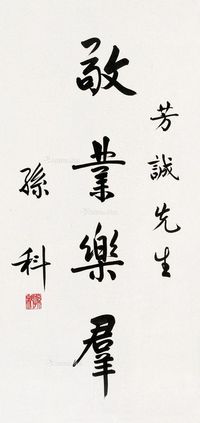 芳誠先生
敬業樂羣
孫科